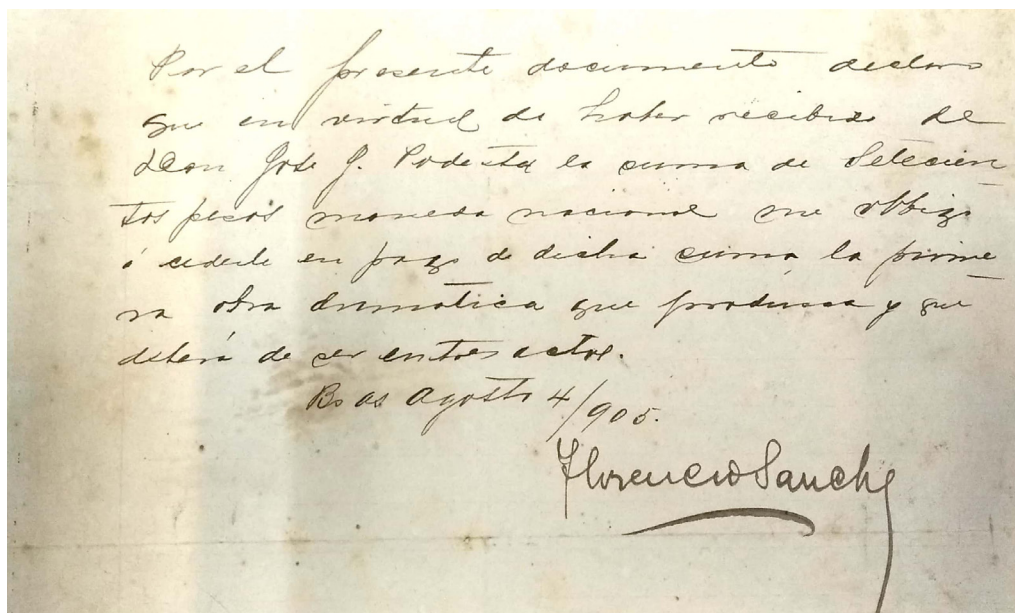 Por el presente documento declaro
que en virtud de haber recibido de
Don José J. Podestá la suma de Setecien
tos pesos moneda nacional me obligo
á cederle en pago de dicha suma la prime
ra obra dramática que produzca y que
deberá de ser en tres actos.
Bs as Agosto 4/905.
Florencio Sánchez